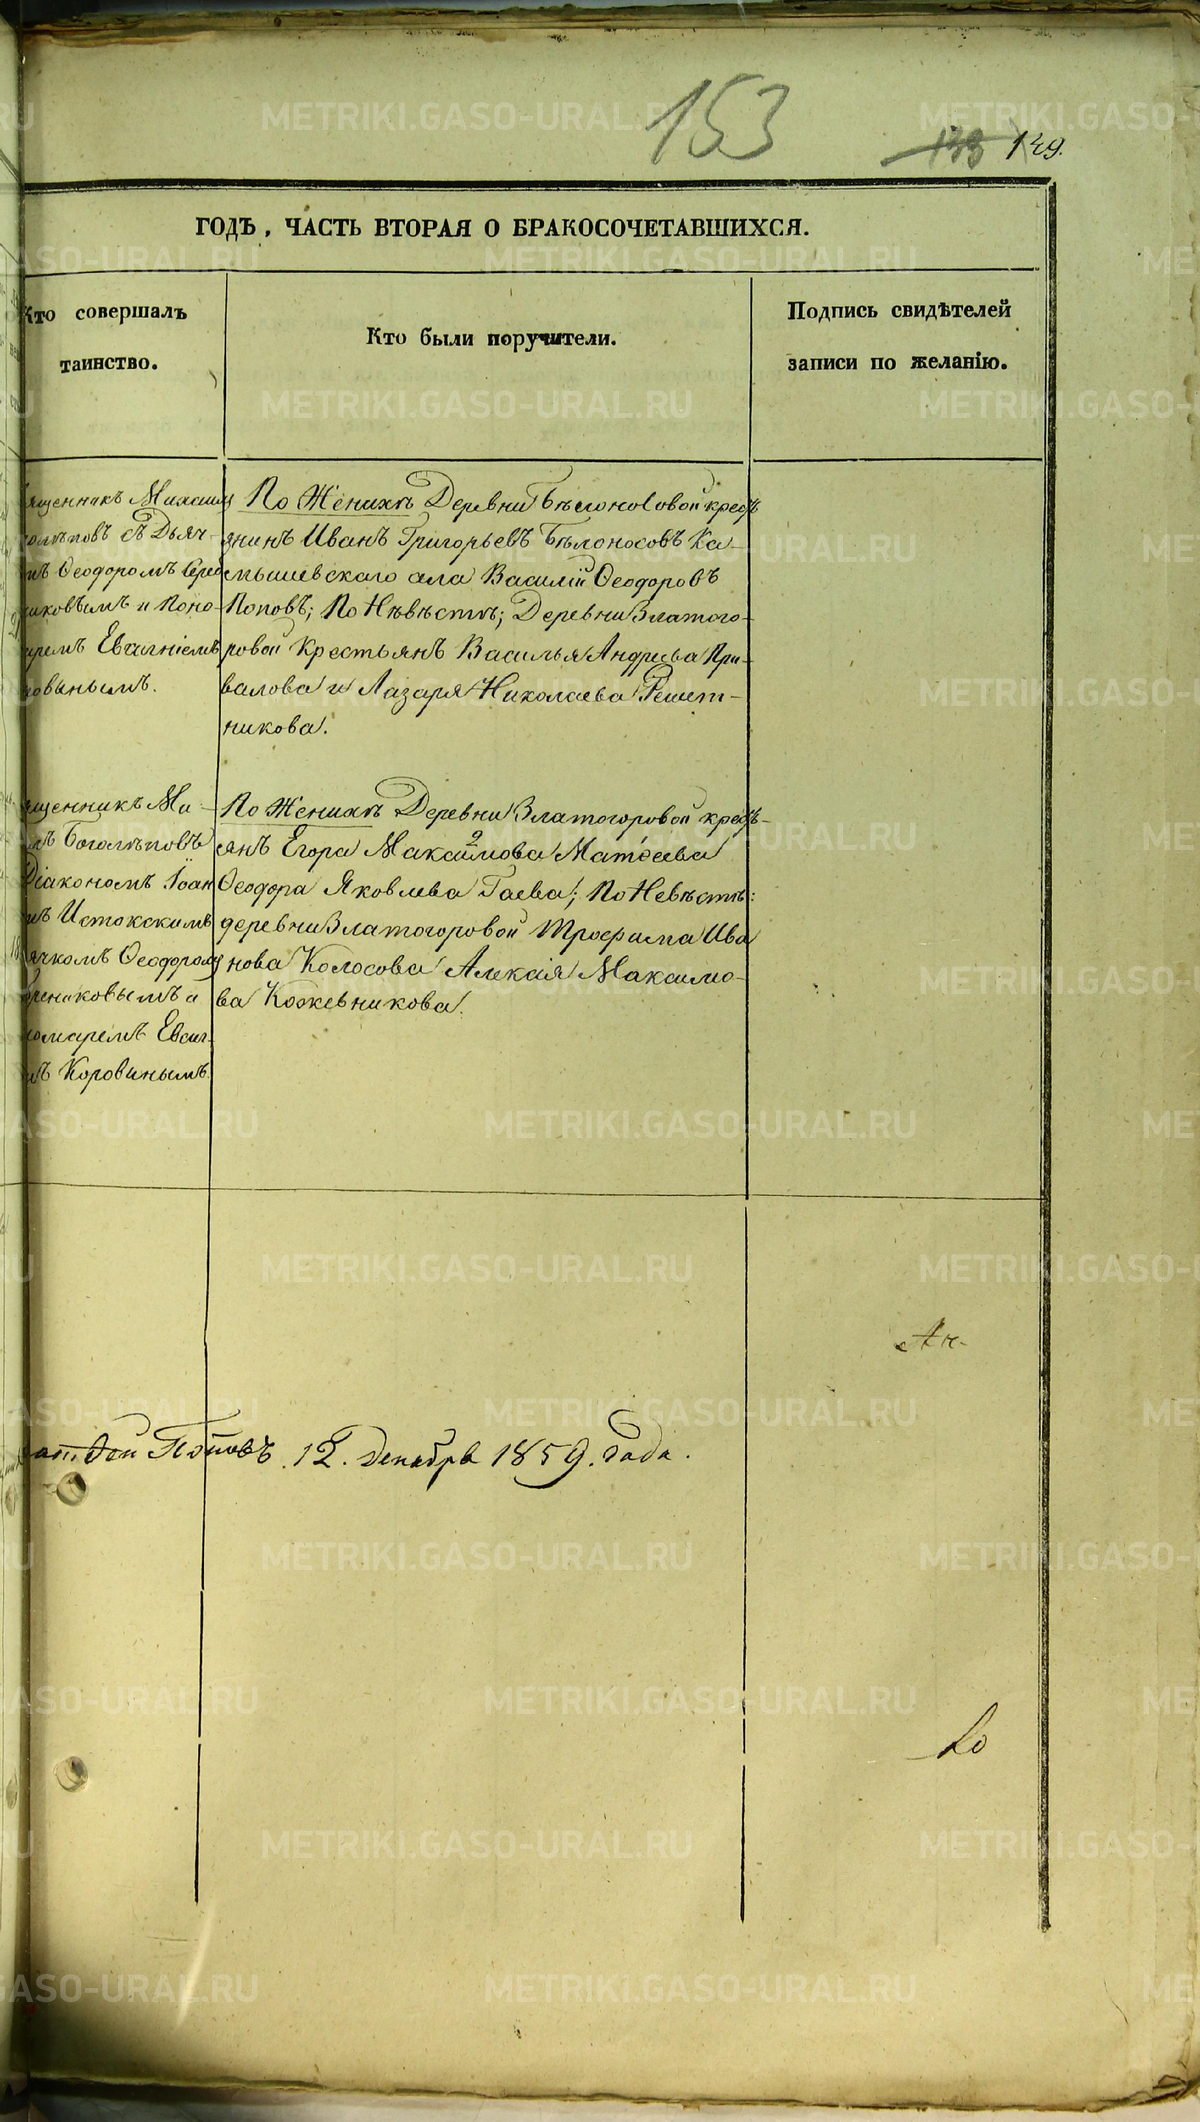 153
133 149.
ГОДЪ, ЧАСТЬ ВТОРАЯ О БРАКОСОЧЕТАВШИХСЯ.
Кто совершалъ
таинство.
Кто были поручители.
Подпись свидѣтелей
записи по желанію.
ященникъ Михаилъ
олѣповъ съ Дьяч-
мъ Ѳеодоромъ Сереб
никовымъ и Поно-
аремъ Евгагніемъ
ровинымъ.
По Женихѣ Деревни Бѣлоносовой кресть
янинъ Иванъ Григорьевъ Бѣлоносовъ Ка-
мышевскаго села Василій Ѳеодоровъ
Поповъ; По Нѣвѣстѣ; Деревни Златого-
ровой Крестьянъ Василья Андреева При-
валова и Лазаря Николаева Решет-
никова.
ященникъ Ми-
лъ Боголѣповъ
Діакономъ Іоан
мъ Истокскимъ
ячкомъ Ѳеодоромъ
бренниковымъ и
омаремъ Евсиг-
мъ Коровинымъ.
По Женихѣ Деревни Златогоровой кресть-
янъ Егора Максимова Матѳеева
Ѳеодора Яковлева Гаева; По Невѣстѣ:
деревни Златогоровой Трофима Ива
нова Колосова Алексія Максимо-
ва Кожевникова.
Ан-
Поповъ. 12. Декабря 1859. года.
Ло